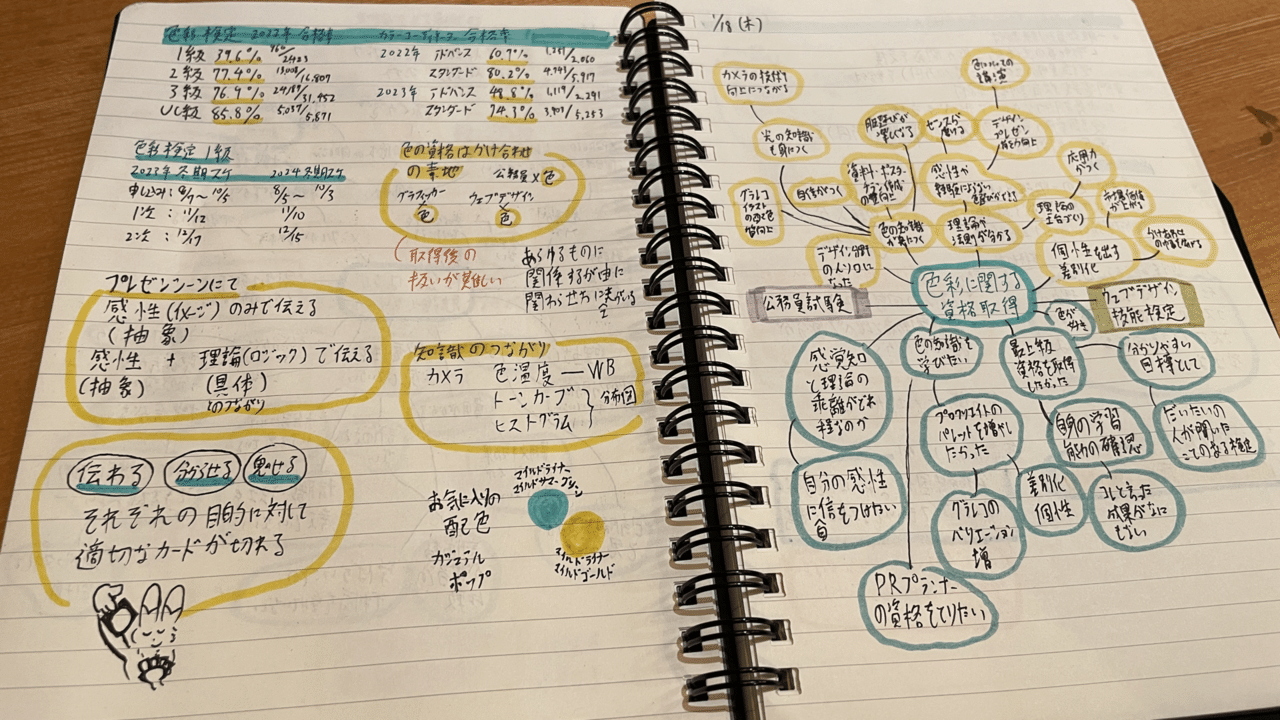 色彩検定 2022年 合格率
1級 39.6% 960/2423
2級 77.4% 13,008/16,809
3級 76.9% /31,452
UC級 85.8% 5,037/5,871
カラーコーディネーター 合格率
2022年 アドバンス 60.7% 1,251/2,060
スタンダード 80.2% 4,743/5,917
2023年 アドバンス 48.8% 1,119/2,291
スタンダード 74.3% 3,903/5,253
色彩検定 1級
2023年冬期スケ 2024冬期スケ
申し込み:8/7〜10/5 8/5〜10/3
1次:11/12 11/10
2次:12/17 12/15
色の資格はかけ合わせ
の素地 公務員×色
グラフィッカー ウェブデザイン
色 色
(取得後の
扱いが難しい
あらゆるものに
関係するが故に
関わせ方に迷がでる
プレゼンシーンにて
感性(イメージ)のみで伝える
(抽象)
感性 + 理論(ロジック)で伝える
(抽象) (具体)
とのつながり
知識のつながり
カメラ 色温度—WB
トーンカーブ
ヒストグラム
分布図
伝わる 分からせる 魅せる
それぞれの目的に対して
適切なカードが切れる
お気に入りの
配色
ガジェデル
ポップ
マイルドライナー
マイルドサマーグリーン
マイルドライナー
マイルドゴールド
1/18(木)
カメラの技術
向上につながる
色についての
講演
光の知識
も身につく
服選びが
楽しくなる
センスが
磨ける
デザイン
プレゼン
能力向上
応用力
がつく
グラレコ
イラスト
の配色
質向上
自信がつく
資料・ポスター
チラシ作成
の質向上
感性が
理論の
土台づくり
希少価値
が上がる
色の知識
が身につく
理論が
法則が分かる
個性を出す
差別化
かけあわせ
の幅を広げる
デザイン分野
の人の目に
なった
色彩に関する
資格取得
公務員試験
ウェブデザイン
技能検定
色が好き
感覚知
と理論の
乖離がどれ
程なのか
色の知識を
学びたい
最上級
資格を取得
したかった
分かりやすい
目標として
自分の感性
に信をつけたい
自
プロクリエイトの
パレットを増やし
たかった
自身の学習
能力の確認
だいたいの
人が聞いた
ことのある検定
グラレコの
バリエーション
増
差別化
個性
コレと言った
成果がなに
もない
PRプランナー
の資格もとりたい